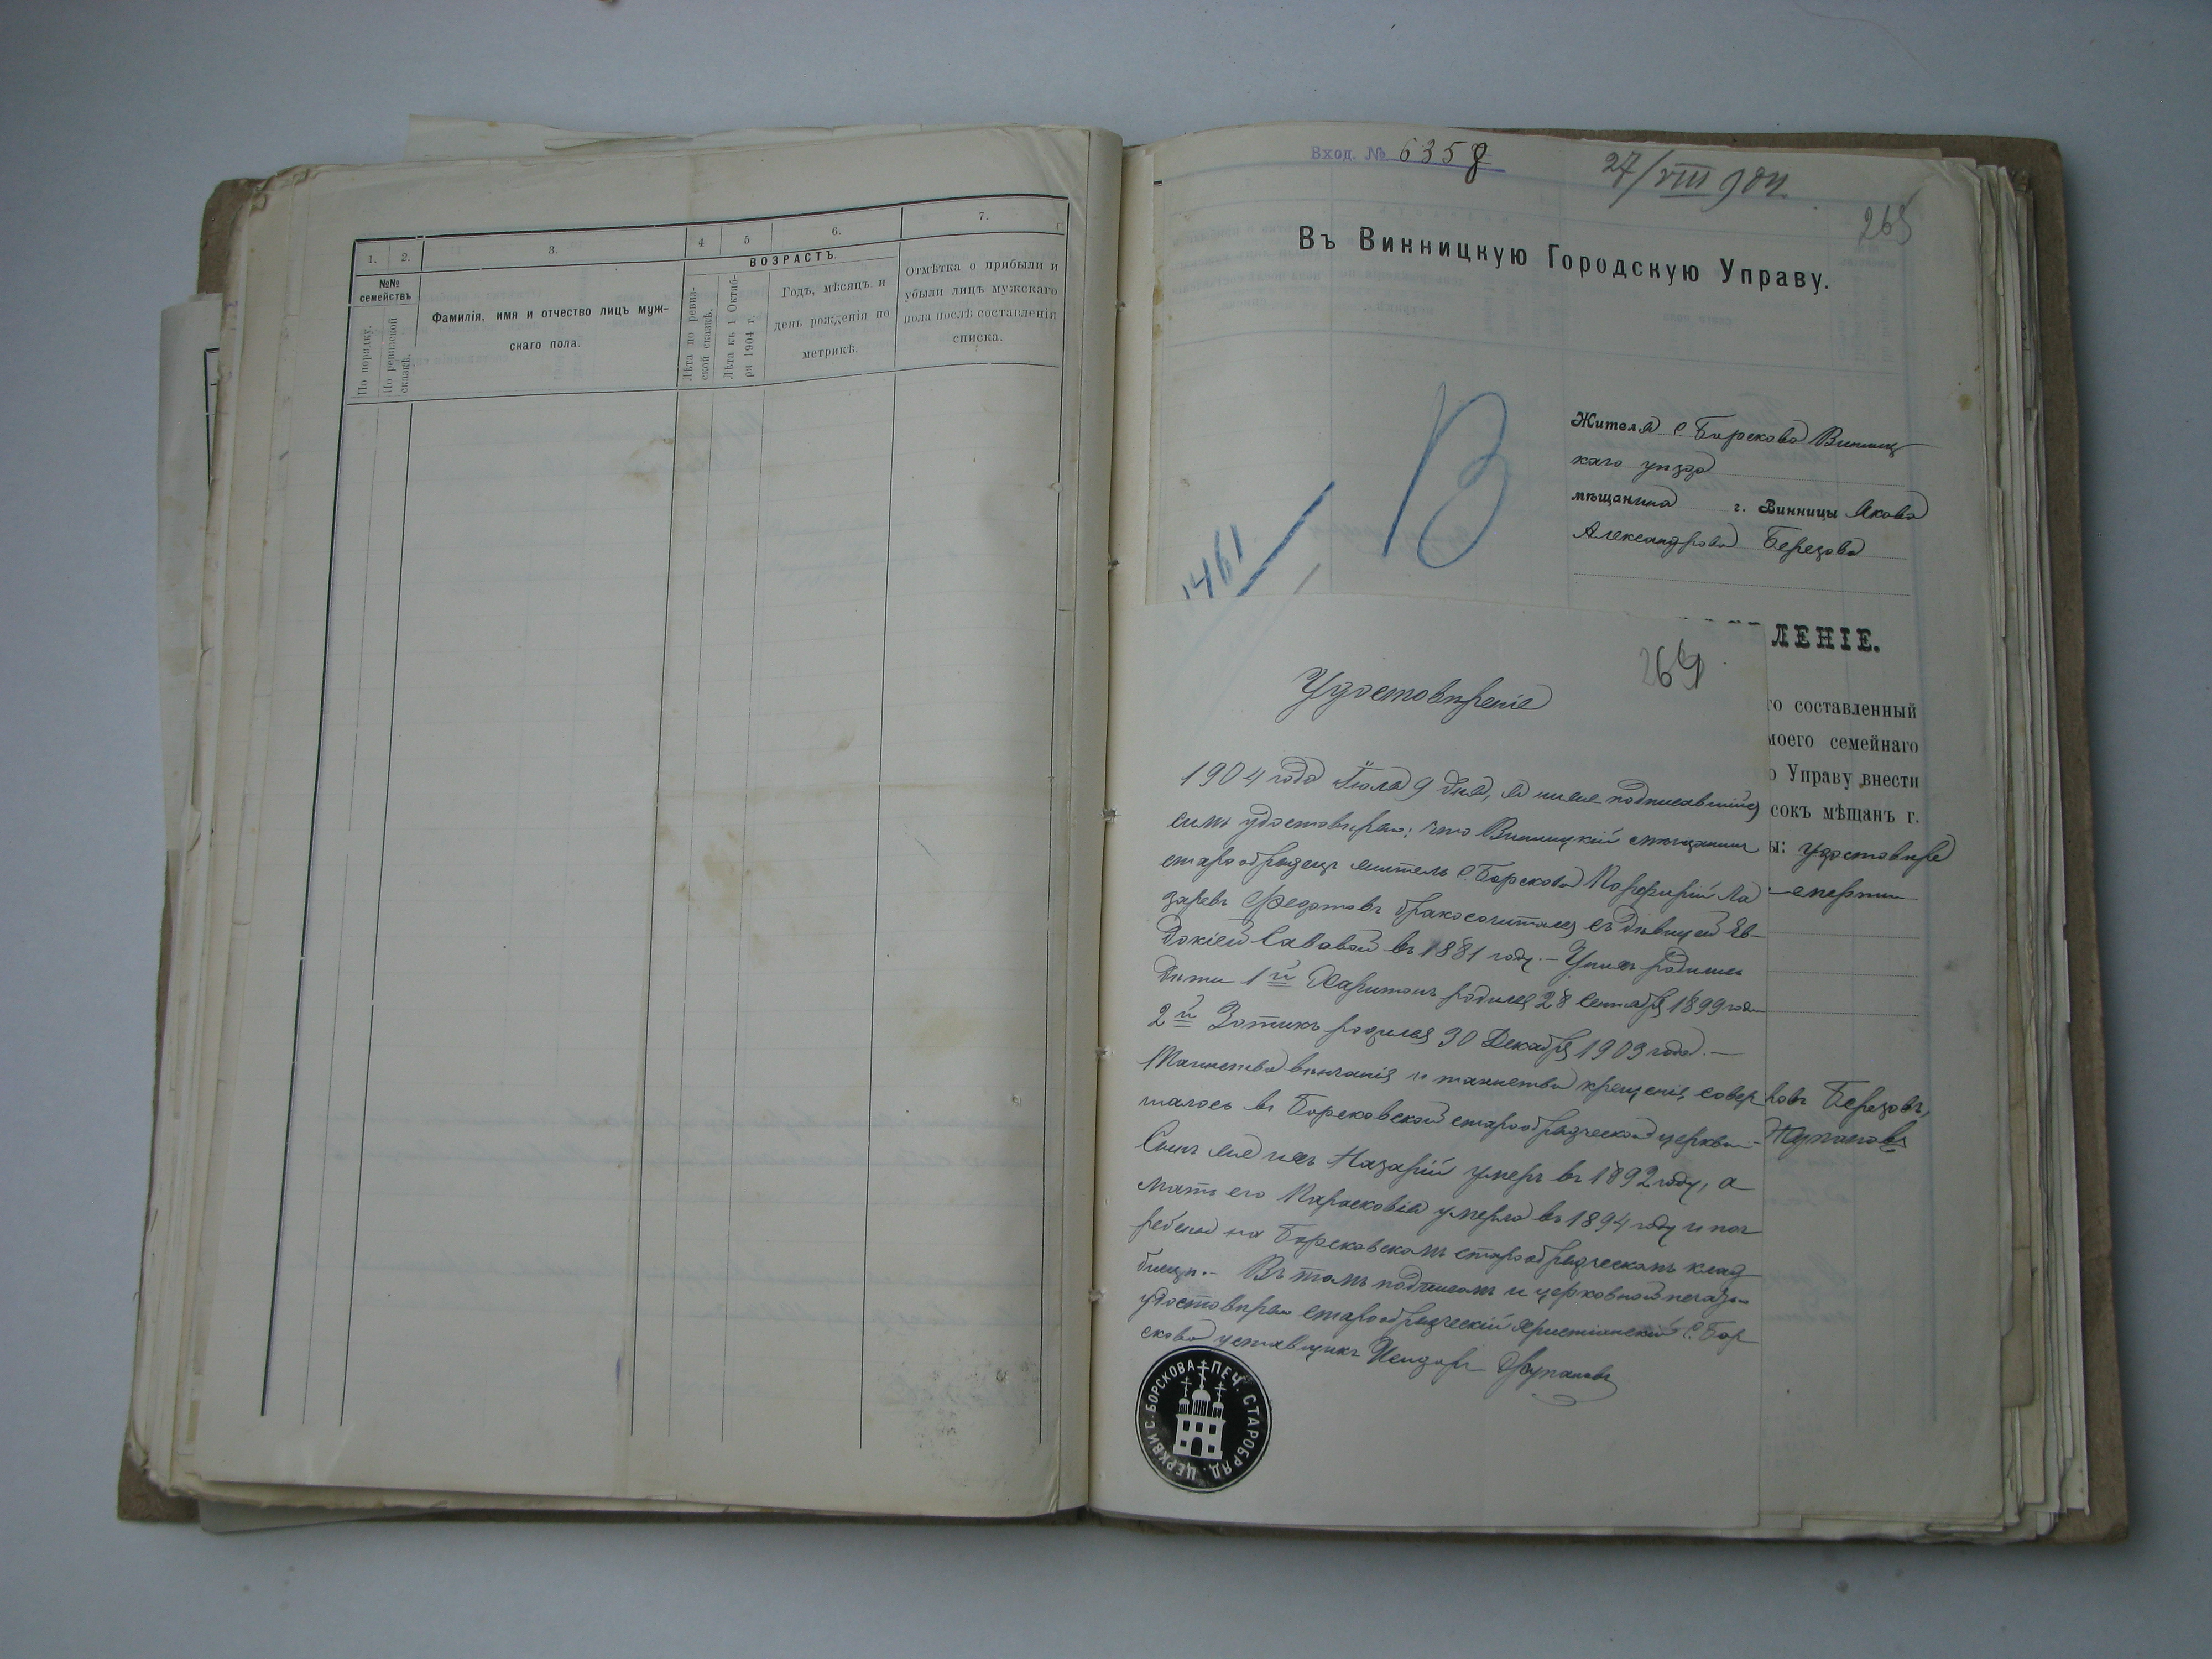 1.
2.
3.
4
5
6.
7.
№№ семействъ
По порядку.
По ревизской сказкѣ.
Фамилія, имя и отчество лицъ муж-
скаго пола.
ВОЗРАСТЪ.
Лѣта по ревиз-
ской сказкѣ.
Лѣта къ 1 Октяб-
ря 1904 г.
Годъ, мѣсяцъ и
день рожденія по
метрикѣ.
Отмѣтка о прибыли и
убыли лицъ мужскаго
пола послѣ составленія
списка.
Вход. № 6358
27/VIII 904.
265
Въ Винницкую Городскую Управу.
В
1461
Жителя с Борскова Винниц
каго уѣзда
мѣщанина г. Винницы Якова
Александрова Березова
ЛЕНІЕ.
го составленный
моего семейнаго
о Управу внести
сокъ мѣщанъ г.
ы: удостовѣре
смерти
ковъ Березовъ,
Жупановъ
264
Удостовѣреніе
1904 года Іюля 9 дня, я ниже подписавшійся
симъ удостовѣряю: что Винницкій мѣщанинъ
старообрядецъ житель с. Борскова Порфирій Ла
заревъ Федотовъ бракосочитался съ дѣвицей Ев-
докіей Савовой въ 1881 году. – У нихъ родились
дѣти 1й Харитонъ родился 28 Сентября 1899 года
2й Зотикъ родился 30 Декабря 1903 года. –
Таинства вѣнчанія и таинства крещенія совер
шалось въ Борсковской старообрядческой церкви. –
Сынъ же ихъ Назарій умеръ въ 1892 году, а
мать его Парасковія умерла въ 1894 году и пог
ребены на Борсковскомъ старообрядческомъ клад
бищѣ. – Въ томъ подписомъ и церковной печатью
удостовѣряю старообрядческій христіанскій с. Бор
скова уставщикъ Исидоръ Жупановъ
ПЕЧ. СТАРОБРЯД. ЦЕРКВИ С. БОРСКОВА